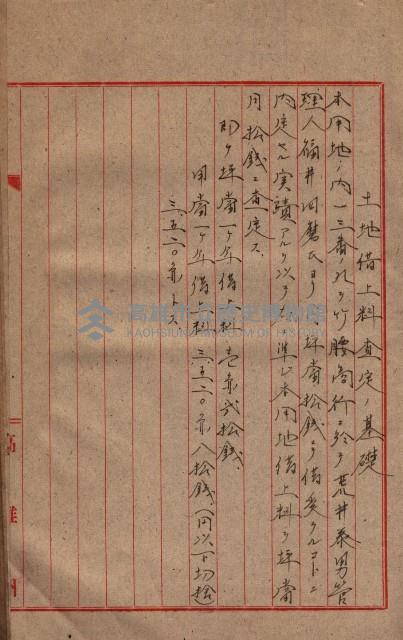 土地借上料査定ノ基礎
本用地ノ内一三番ノ九ヲ竹腰商行ニ於テ荒井泰男管
理人福井日磨氏ヨリ坪當拾錢ヲ借受クルコトニ
内定セル実績アルヲ以テ準ジ本用地借上料ヲ坪當
月拾錢ニ査定ス
即チ坪當一ケ年借上料壱円弐拾錢
用當一ケ年借料三、五二〇円八拾錢（円以下切捨
三、五二〇円トス
高雄市立歷史博物館
KAOHSIUNG MUSEUM OF HISTORY
高雄州